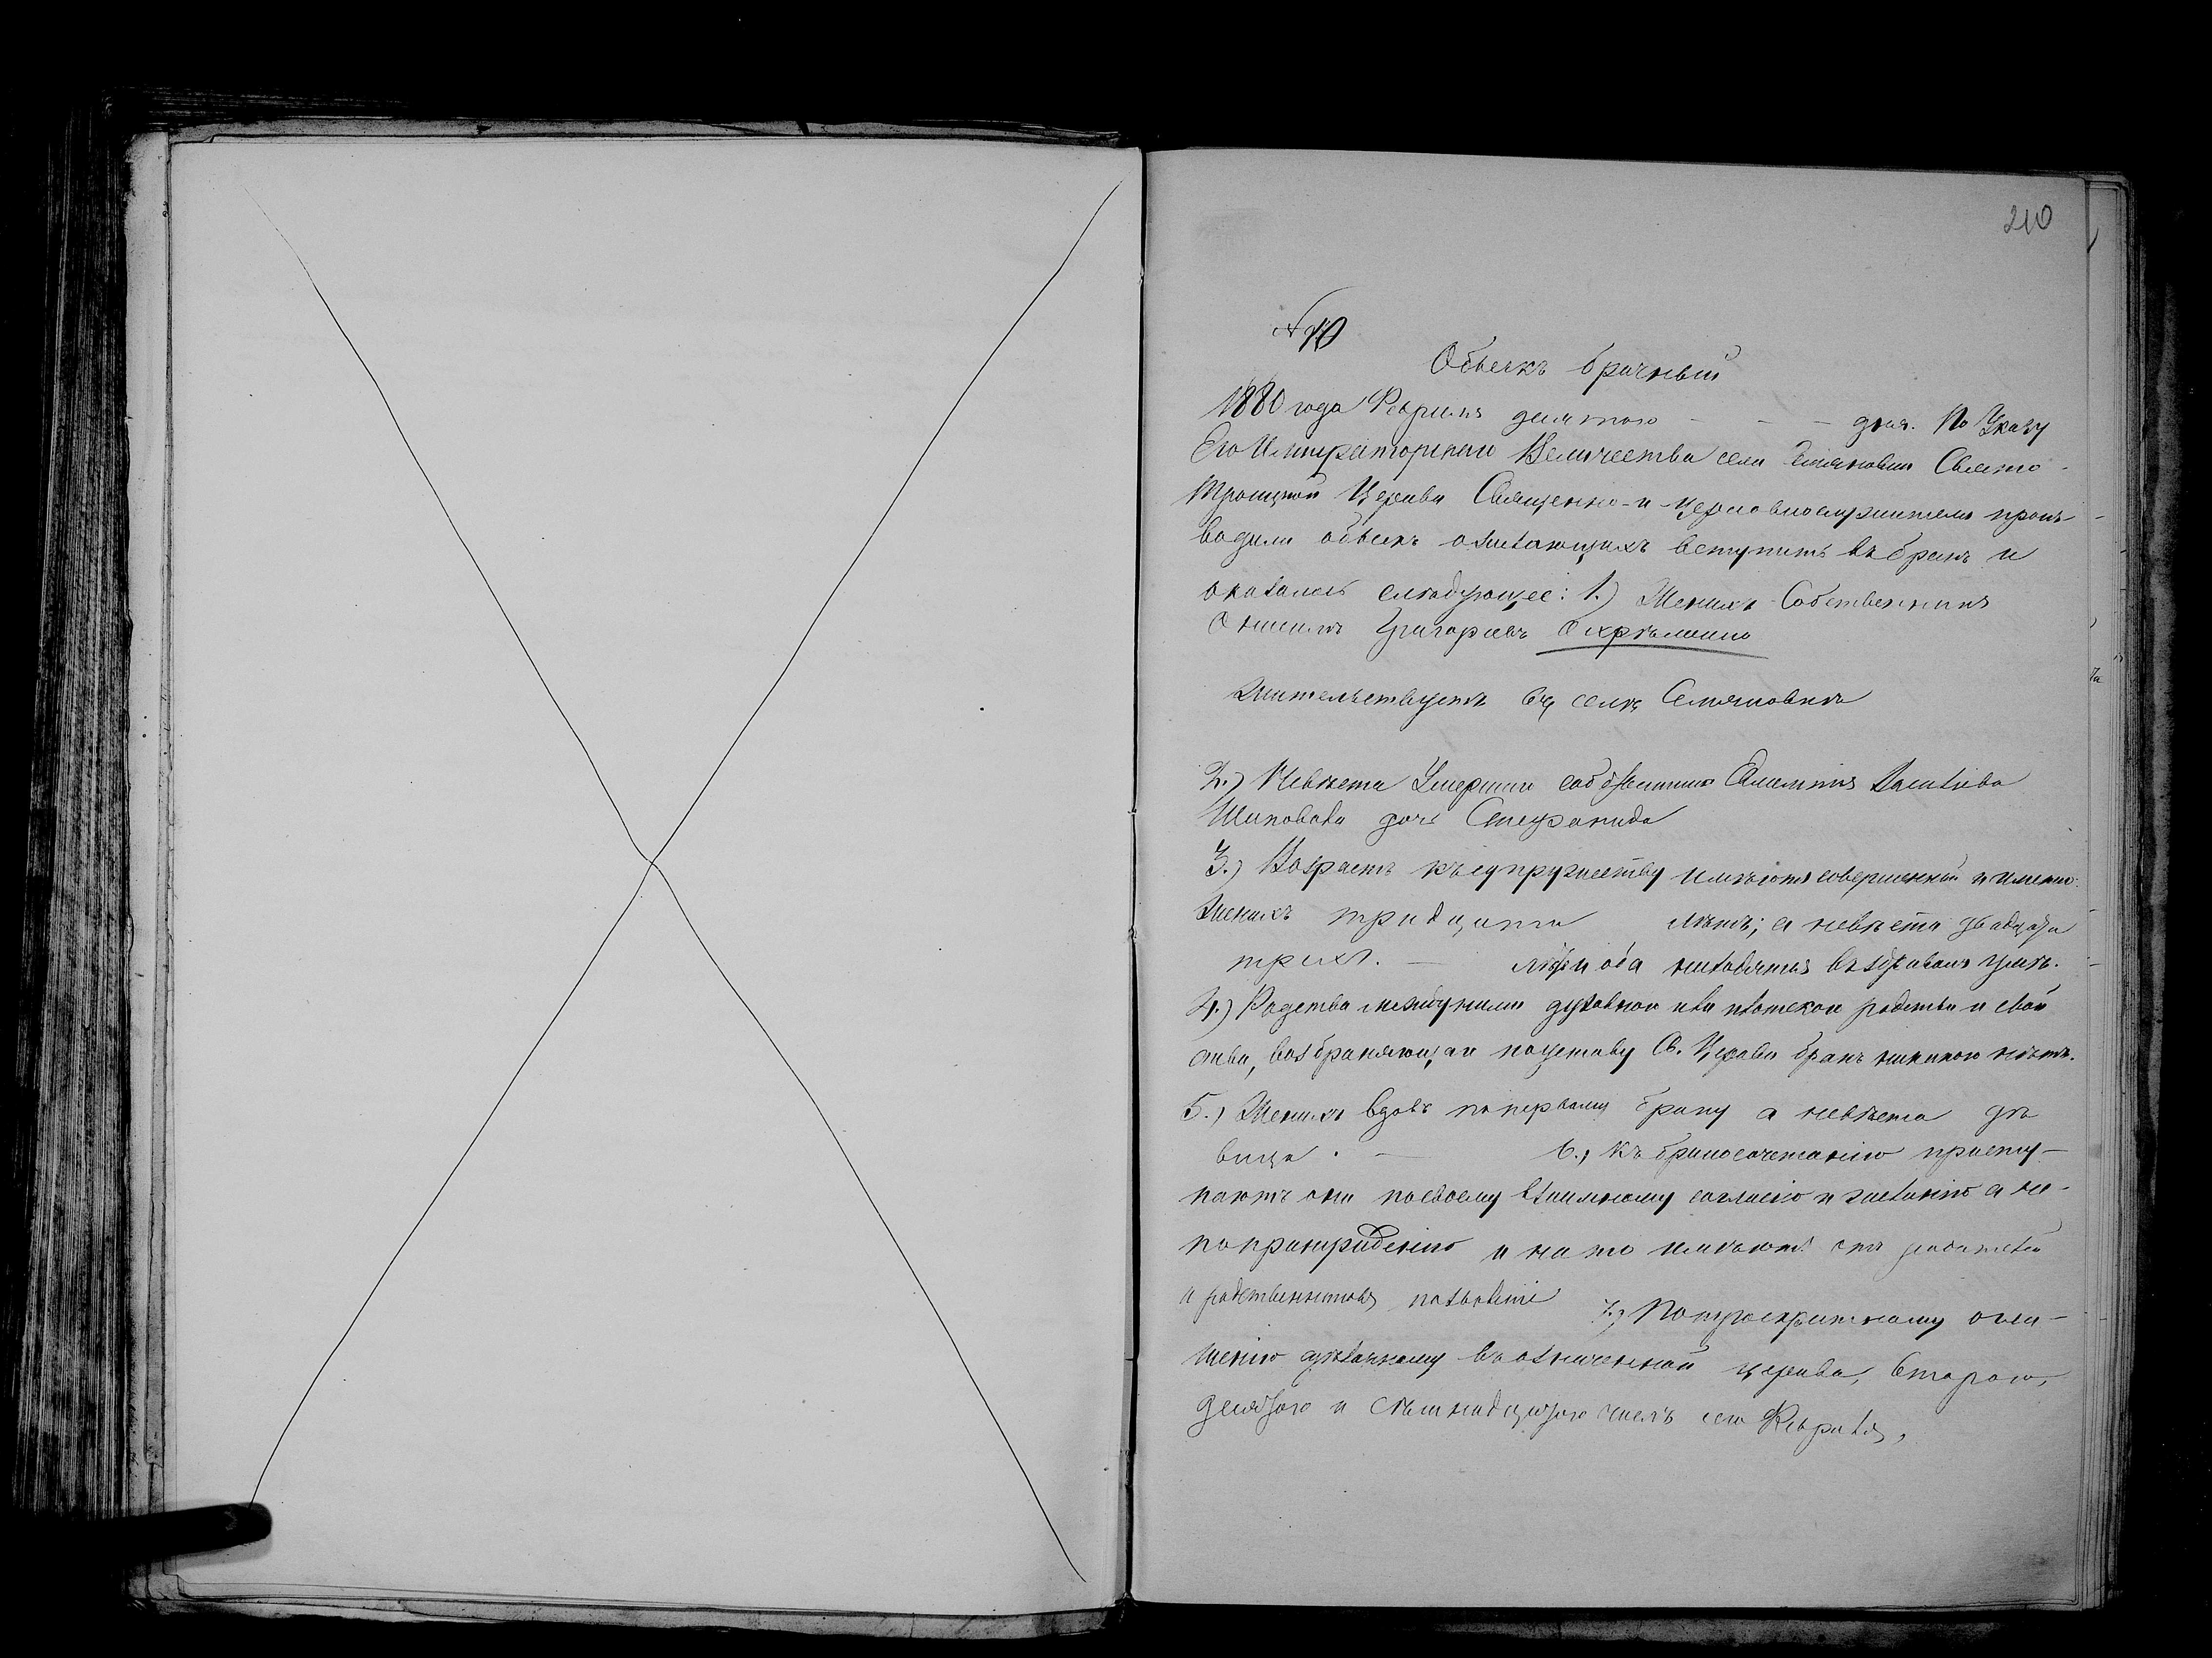 210
№ 10
Обыскъ брачный
1880 года Февраля девятого - - - дня. По Указу
Его Императорскаго Величества села Свято-
Троицкой Церкви Священно-и-церковнослужители произ-
водили обыскъ о желающихъ вступить въ бракъ и
оказалось слѣдующее: 1.) Женихъ Собственникъ
Григорьевъ Охрѣменко
жительствуетъ въ селѣ Семяновкѣ
2.) Невѣста Умершаго собственника
Шаповала дочь Стефанида
3.) Возрастъ къ супружеству имѣютъ совершенный и именно:
Женихъ тридцати лѣтъ; а невѣста двадцати
трехъ. — лѣтъ и оба находятся въ здравомъ умѣ.
4.) Родства между ними духовнаго или плотскаго родства и свой
ства, возбраняющаго по уставу Св. Церкви бракъ никакого нѣтъ.
5.) Женихъ вдовъ по первому браку а невѣста дѣ
вица. — 6.) Къ бракосочетанію присту-
паютъ они по своему взаимному согласію и желанію а не-
по принужденію и на то имѣютъ отъ родителей
и родственниковъ позволеніе 7.) По троекратному огла-
шенію сдѣланному въ означенной церкви, второго,
девятого и семнадцатого числъ сего Февраля,